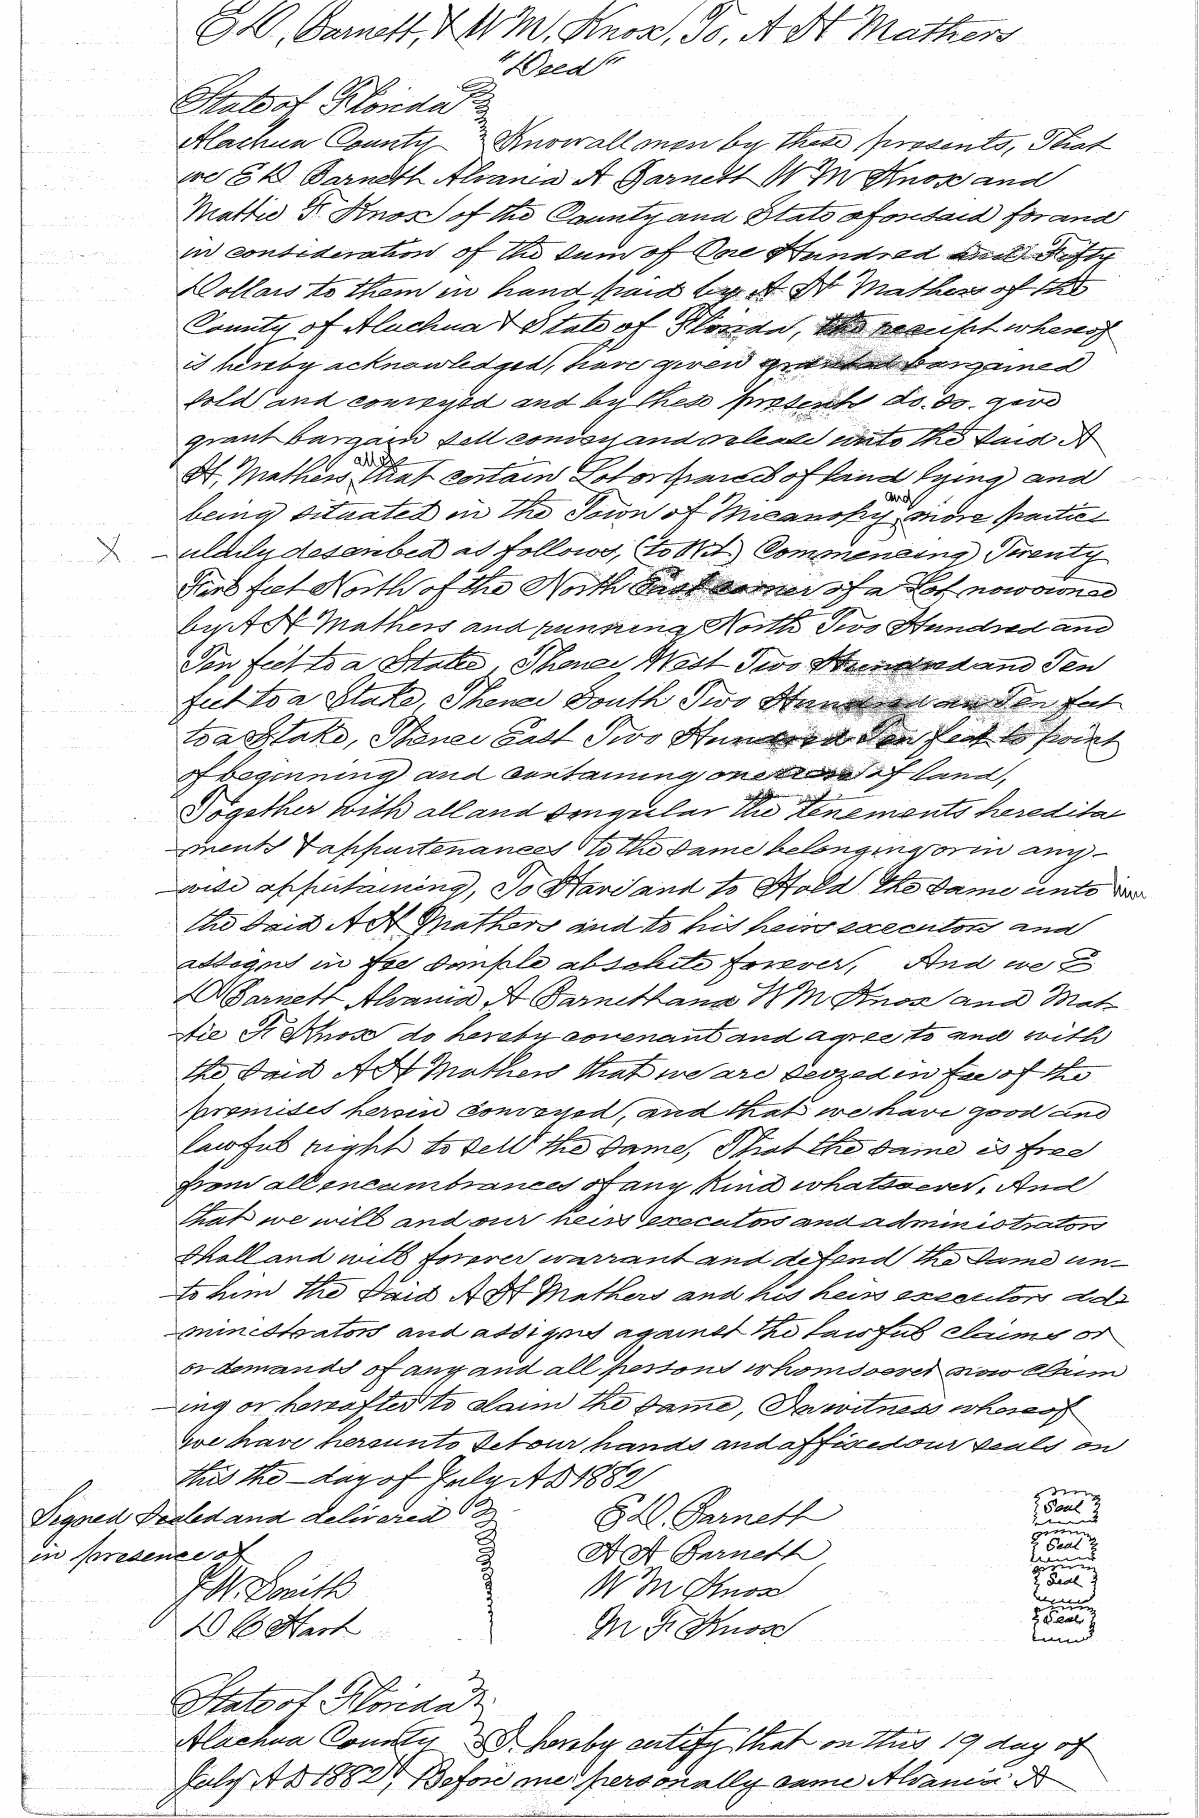 E D, Barnett, & W M, Knox, To, A H Mathers
"Deed"
State of Florida
Alachua County Know all men by these presents, That
we E D Barnett Alvania A Barnett W M Knox and
Mattie F. Knox of the County and State aforesaid for and
in consideration of the sum of One Hundred and Fifty
Dollars to them in hand paid by A H Mathers of the
County of Alachua & State of Florida, the receipt whereof
is hereby acknowledged, have given granted bargained
sold and conveyed and by these presents do. so. give
grant bargain sell convey and release unto the said A
H. Mathers, all that certain Lot or parcel of land lying and
being situated in the Town of Micanopy and more partic
ularly described as follows, (to Wit) Commencing Twenty
Five feet North of the North East corner of a Lot now owned
by A H Mathers and running North Two Hundred and
Ten feet to a Stake, Thence West Two Hundred and Ten
feet to a Stake, Thence South Two Hundred an Ten feet
to a Stake, Thence East Two Hundred Ten feet to point
of beginning and containing one acre of land,
Together with all and singular the tenements heredita
ments & appurtenances to the same belonging or in any-
wise appertaining, To Have and to Hold the same unto him
the said A H Mathers and to his heirs executors and
assigns in fee simple absolute forever, And we E
D Barnett Alvania A Barnett and W M Knox and Mat
tie F. Knox do hereby covenant and agree to and with
the said A H Mathers that we are seized in fee of the
premises herein conveyed, and that we have good and
lawful right to sell the same, That the same is free
from all encumbrances of any kind whatsoever. And
that we will and our heirs executors and administrators
shall and will forever warrant and defend the same un-
to him the said A H Mathers and his heirs executors ad
ministrators and assigns against the lawful claims or
or demands of any and all persons whomsoever now claim
ing or hereafter to claim the same, In witness whereof
we have hereunto set our hands and affixed our seals on
this the - day of July A D 1882
Signed Sealed and delivered E D. Barnett Seal
in presence of A A Barnett Seal
J. W. Smith W M Knox Seal
D C Hart M F Knox Seal
State of Florida
Alachua County I hereby certify that on this 19 day of
July A D 1882, Before me personally came Alvania A